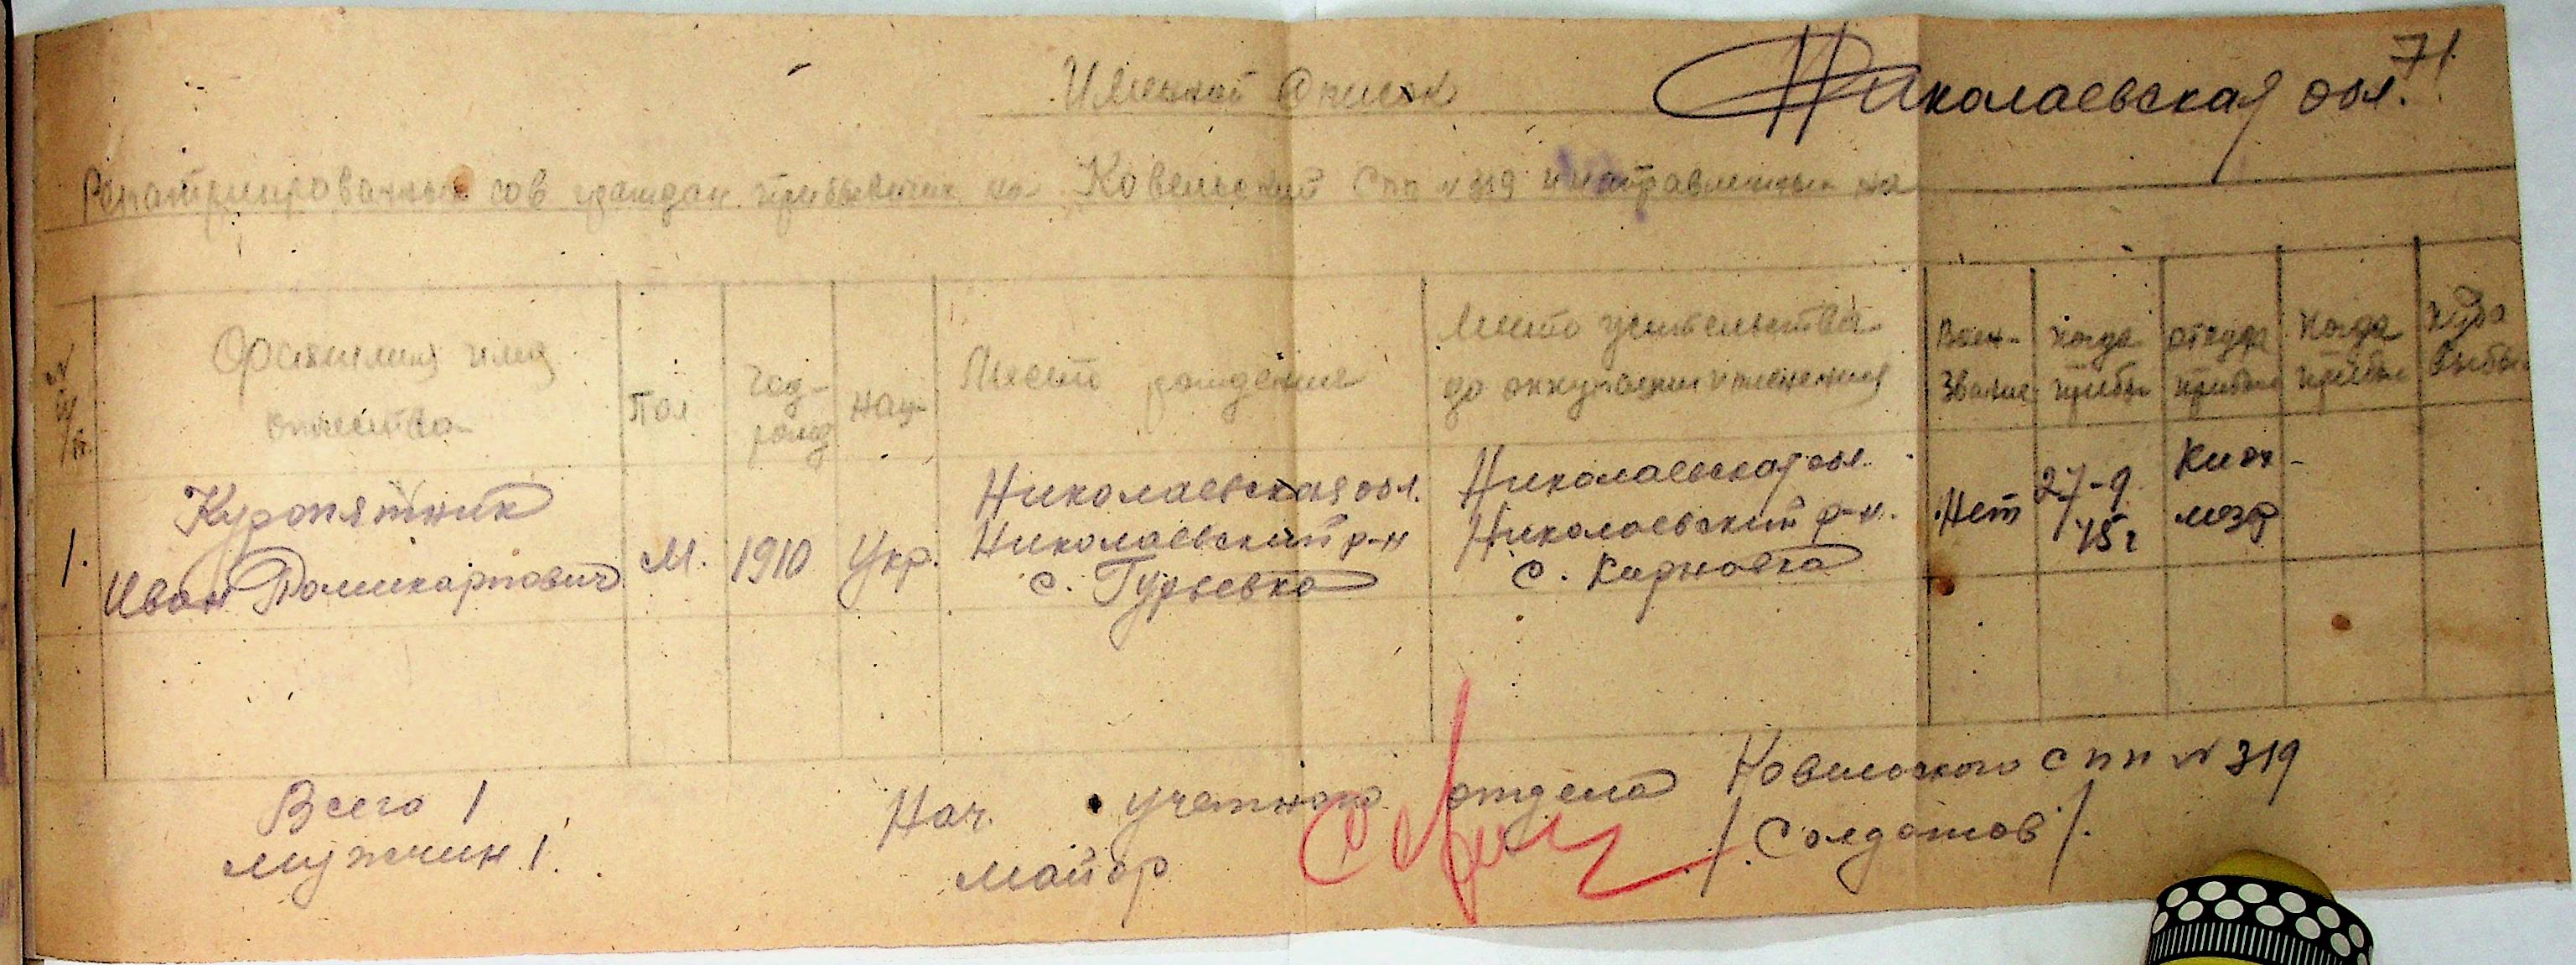 71
Николаевская обл.
Именной Список
Репатриированных сов граждан прибывших на Ковельский Спп № 319 и направленных на
№ п/п
Фамилия имя отчество
Пол
Год рожд
Нац
Место рождения
Место жительства до оккупации и пленения
Воен-звание
когда прибы
откуда прибыл
когда
куда выбы
1.
Куропятник
Иван Поликарпович
М.
1910
Укр.
Николаевская обл.
Николаевский р-н
с. Гурьевка
Николаевская обл.
Николаевский р-н.
Нет
27-9
45г
Всего 1
мужчин 1.
Нач. учетного отдела Ковельского спп № 319
майор /Солдатов/.